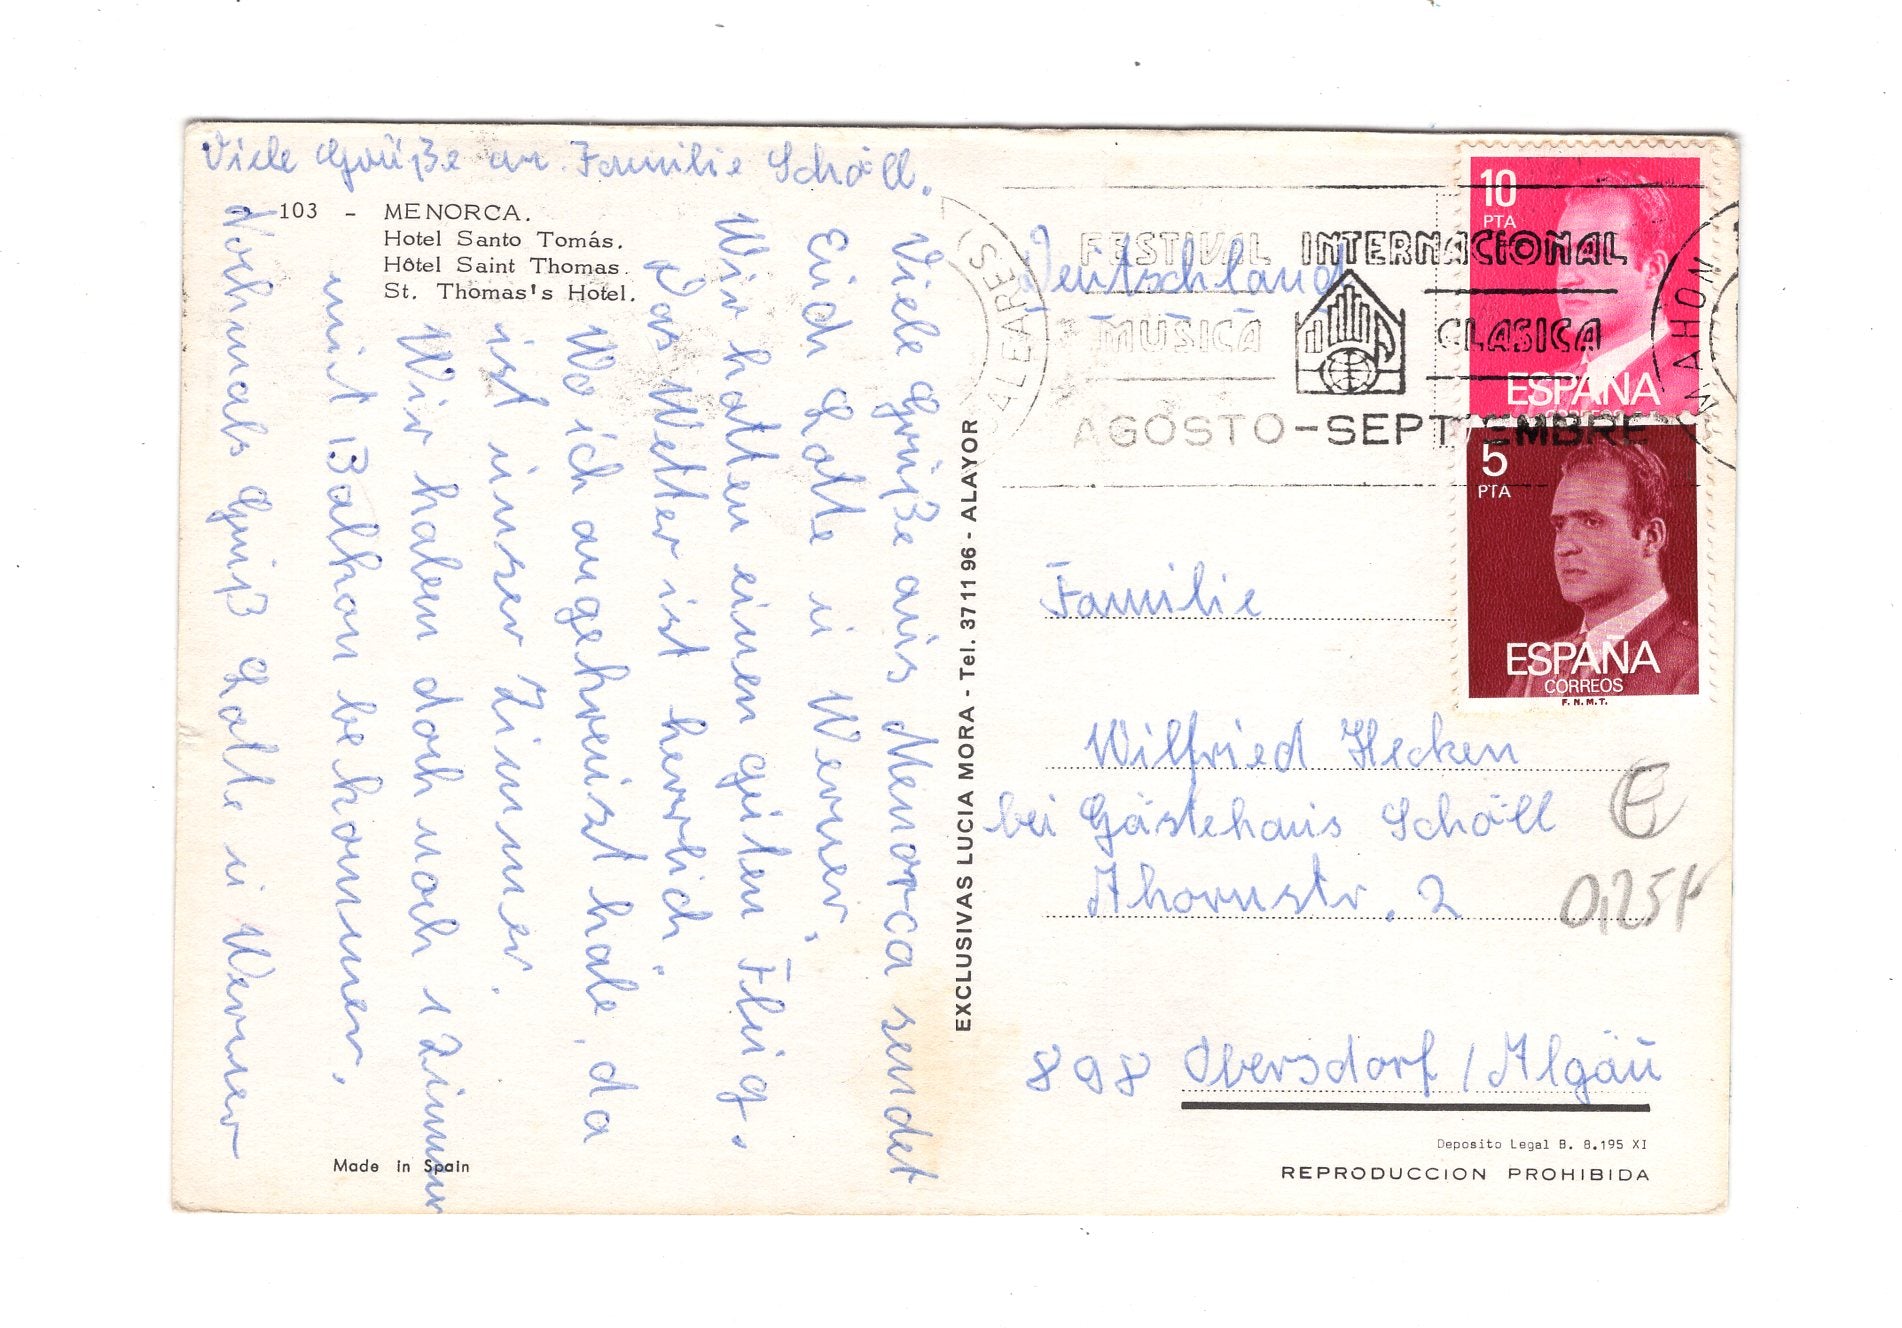 Viele Grüße an Familie Schöll.
103 - MENORCA.
Hotel Santo Tomás.
Hôtel Saint Thomas.
St. Thomas's Hotel.
Viele Grüße aus Menorca sendet
Euch Lotte u Werner.
Wir hatten einen guten Flug.
Das Wetter ist herrlich.
Wo ich angekreuzt habe, da
ist unser Zimmer.
Wir haben doch noch 1 Zimmer
mit Balkon bekommen.
Nochmals Gruß Lotte u Werner
Made in Spain
EXCLUSIVAS LUCIA MORA - Tel. 37 11 96 - ALAYOR
Deutschland
FESTIVAL INTERNACIONAL
MUSICA CLASICA
AGOSTO-SEPTIEMBRE
(BALEARES)
MAHON
10
PTA
ESPAÑA
5
PTA
ESPAÑA
CORREOS
F.N.M.T.
Familie
Wilfried Hecken
bei Gästehaus Schöll
Ahornstr. 2
898 Obersdorf / Algäu
0,25
Deposito Legal B. 8.195 XI
REPRODUCCION PROHIBIDA